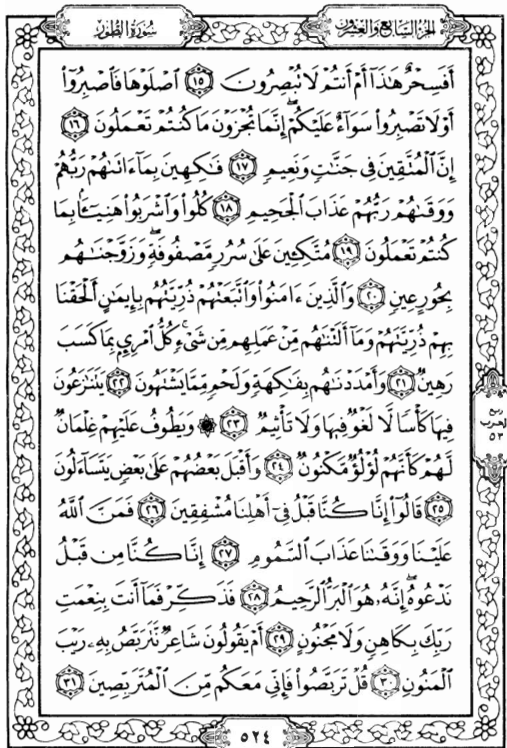 سُورَةُ الطُّورِ
الجُزْءُ السَّابِعُ وَالعِشْرُونَ
أَفَسِحْرٌ هَٰذَآ أَمْ أَنتُمْ لَا تُبْصِرُونَ ١٥ ٱصْلَوْهَا فَٱصْبِرُوٓا۟
أَوْ لَا تَصْبِرُوا۟ سَوَآءٌ عَلَيْكُمْ ۖ إِنَّمَا تُجْزَوْنَ مَا كُنتُمْ تَعْمَلُونَ ١٦
إِنَّ ٱلْمُتَّقِينَ فِى جَنَّٰتٍ وَنَعِيمٍ ١٧ فَٰكِهِينَ بِمَآ ءَاتَىٰهُمْ رَبُّهُمْ
وَوَقَىٰهُمْ رَبُّهُمْ عَذَابَ ٱلْجَحِيمِ ١٨ كُلُوا۟ وَٱشْرَبُوا۟ هَنِيٓـًٔۢا بِمَا
كُنتُمْ تَعْمَلُونَ ١٩ مُتَّكِـِٔينَ عَلَىٰ سُرُرٍ مَّصْفُوفَةٍ ۖ وَزَوَّجْنَٰهُم
بِحُورٍ عِينٍ ٢٠ وَٱلَّذِينَ ءَامَنُوا۟ وَٱتَّبَعَتْهُمْ ذُرِّيَّتُهُم بِإِيمَٰنٍ أَلْحَقْنَا
بِهِمْ ذُرِّيَّتَهُمْ وَمَآ أَلَتْنَٰهُم مِّنْ عَمَلِهِم مِّن شَىْءٍ ۚ كُلُّ ٱمْرِئٍۭ بِمَا كَسَبَ
رَهِينٌ ٢١ وَأَمْدَدْنَٰهُم بِفَٰكِهَةٍ وَلَحْمٍ مِّمَّا يَشْتَهُونَ ٢٢ يَتَنَٰزَعُونَ
فِيهَا كَأْسًا لَّا لَغْوٌ فِيهَا وَلَا تَأْثِيمٌ ٢٣ ۞ وَيَطُوفُ عَلَيْهِمْ غِلْمَانٌ
لَّهُمْ كَأَنَّهُمْ لُؤْلُؤٌ مَّكْنُونٌ ٢٤ وَأَقْبَلَ بَعْضُهُمْ عَلَىٰ بَعْضٍ يَتَسَآءَلُونَ
٢٥ قَالُوٓا۟ إِنَّا كُنَّا قَبْلُ فِىٓ أَهْلِنَا مُشْفِقِينَ ٢٦ فَمَنَّ ٱللَّهُ
عَلَيْنَا وَوَقَىٰنَا عَذَابَ ٱلسَّمُومِ ٢٧ إِنَّا كُنَّا مِن قَبْلُ
نَدْعُوهُ ۖ إِنَّهُۥ هُوَ ٱلْبَرُّ ٱلرَّحِيمُ ٢٨ فَذَكِّرْ فَمَآ أَنتَ بِنِعْمَتِ
رَبِّكَ بِكَاهِنٍ وَلَا مَجْنُونٍ ٢٩ أَمْ يَقُولُونَ شَاعِرٌ نَّتَرَبَّصُ بِهِۦ رَيْبَ
ٱلْمَنُونِ ٣٠ قُلْ تَرَبَّصُوا۟ فَإِنِّى مَعَكُم مِّنَ ٱلْمُتَرَبِّصِينَ ٣١
ربع
الحزب
٥٣
٥٢٤